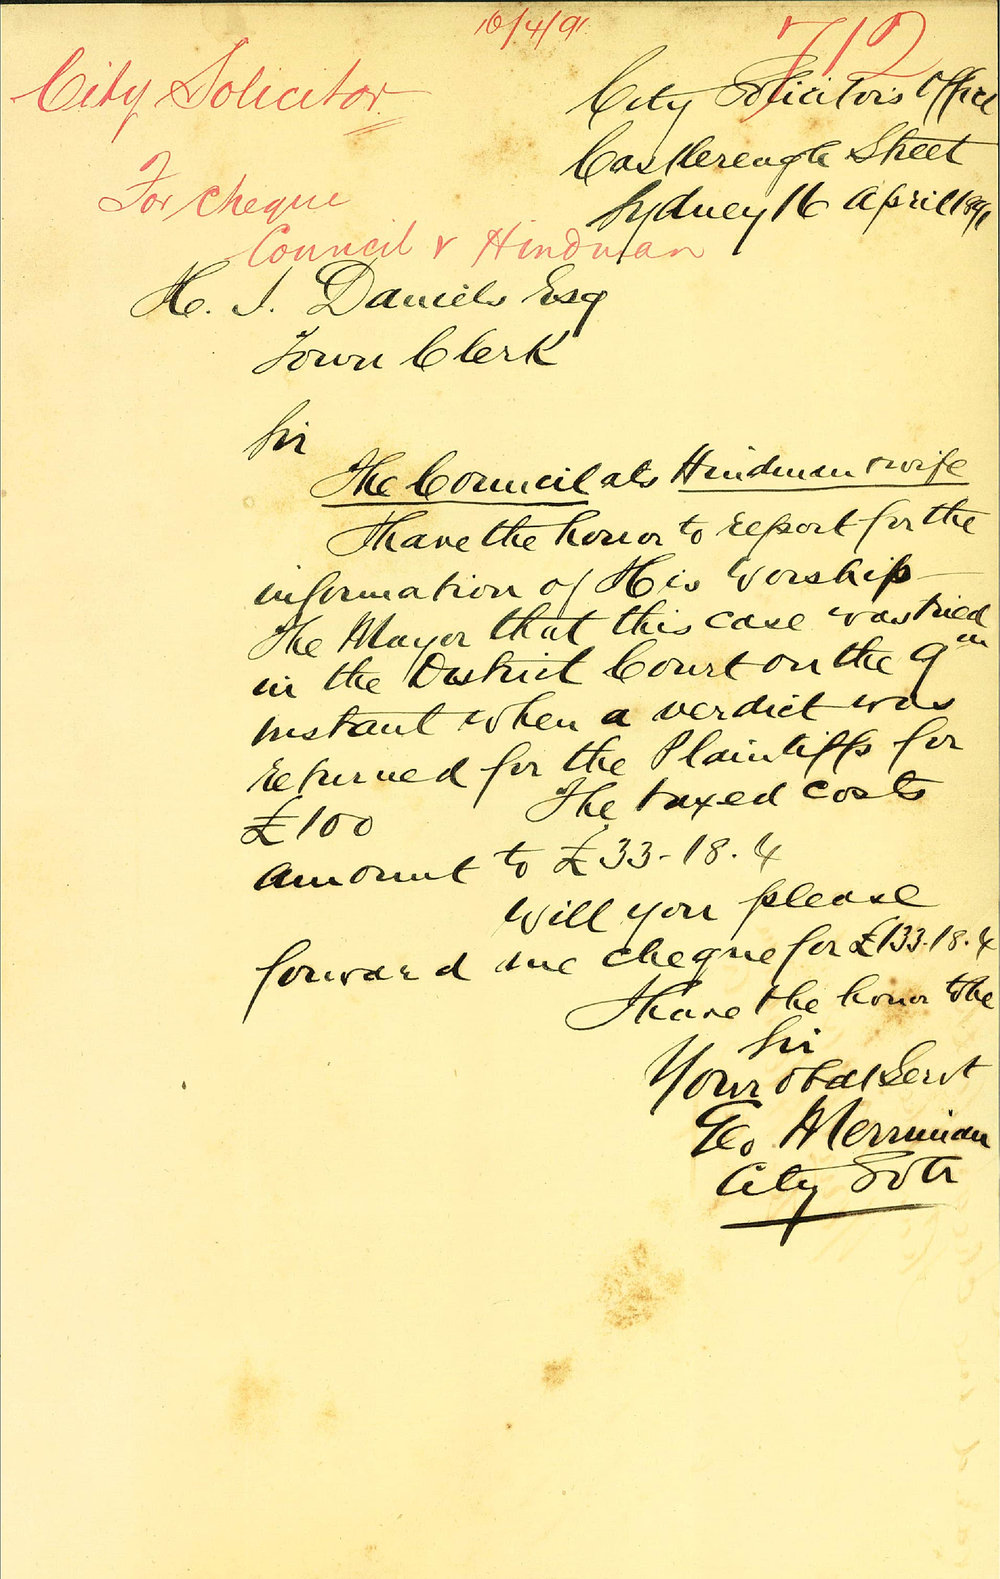 16/4/91
712
City Solicitor
City Solicitor's Office
Castlereagh Street
Sydney 16 April 1891
For cheque
Council v Hindman
H. J. Daniels Esq
Town Clerk
Sir
The Council ats Hindman & wife
I have the honor to report for the
information of His Worship
the Mayor that this case was tried
in the District Court on the 9th
instant when a verdict was
returned for the Plaintiffs for
£100 The taxed costs
amount to £33-18.4
Will you please
forward me cheque for £133-18.4
I have the honor to be
Sir
Your obdt Servt
Geo Merriman
City Solr